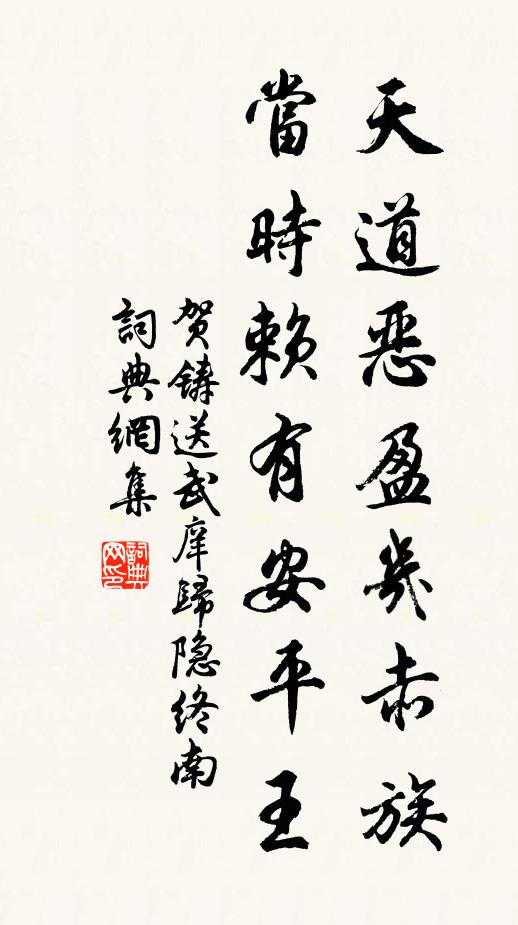 天道惡盈幾赤族
當時賴有安平王
賀鑄送武庠歸隐終南
詞典網集
詞典網印